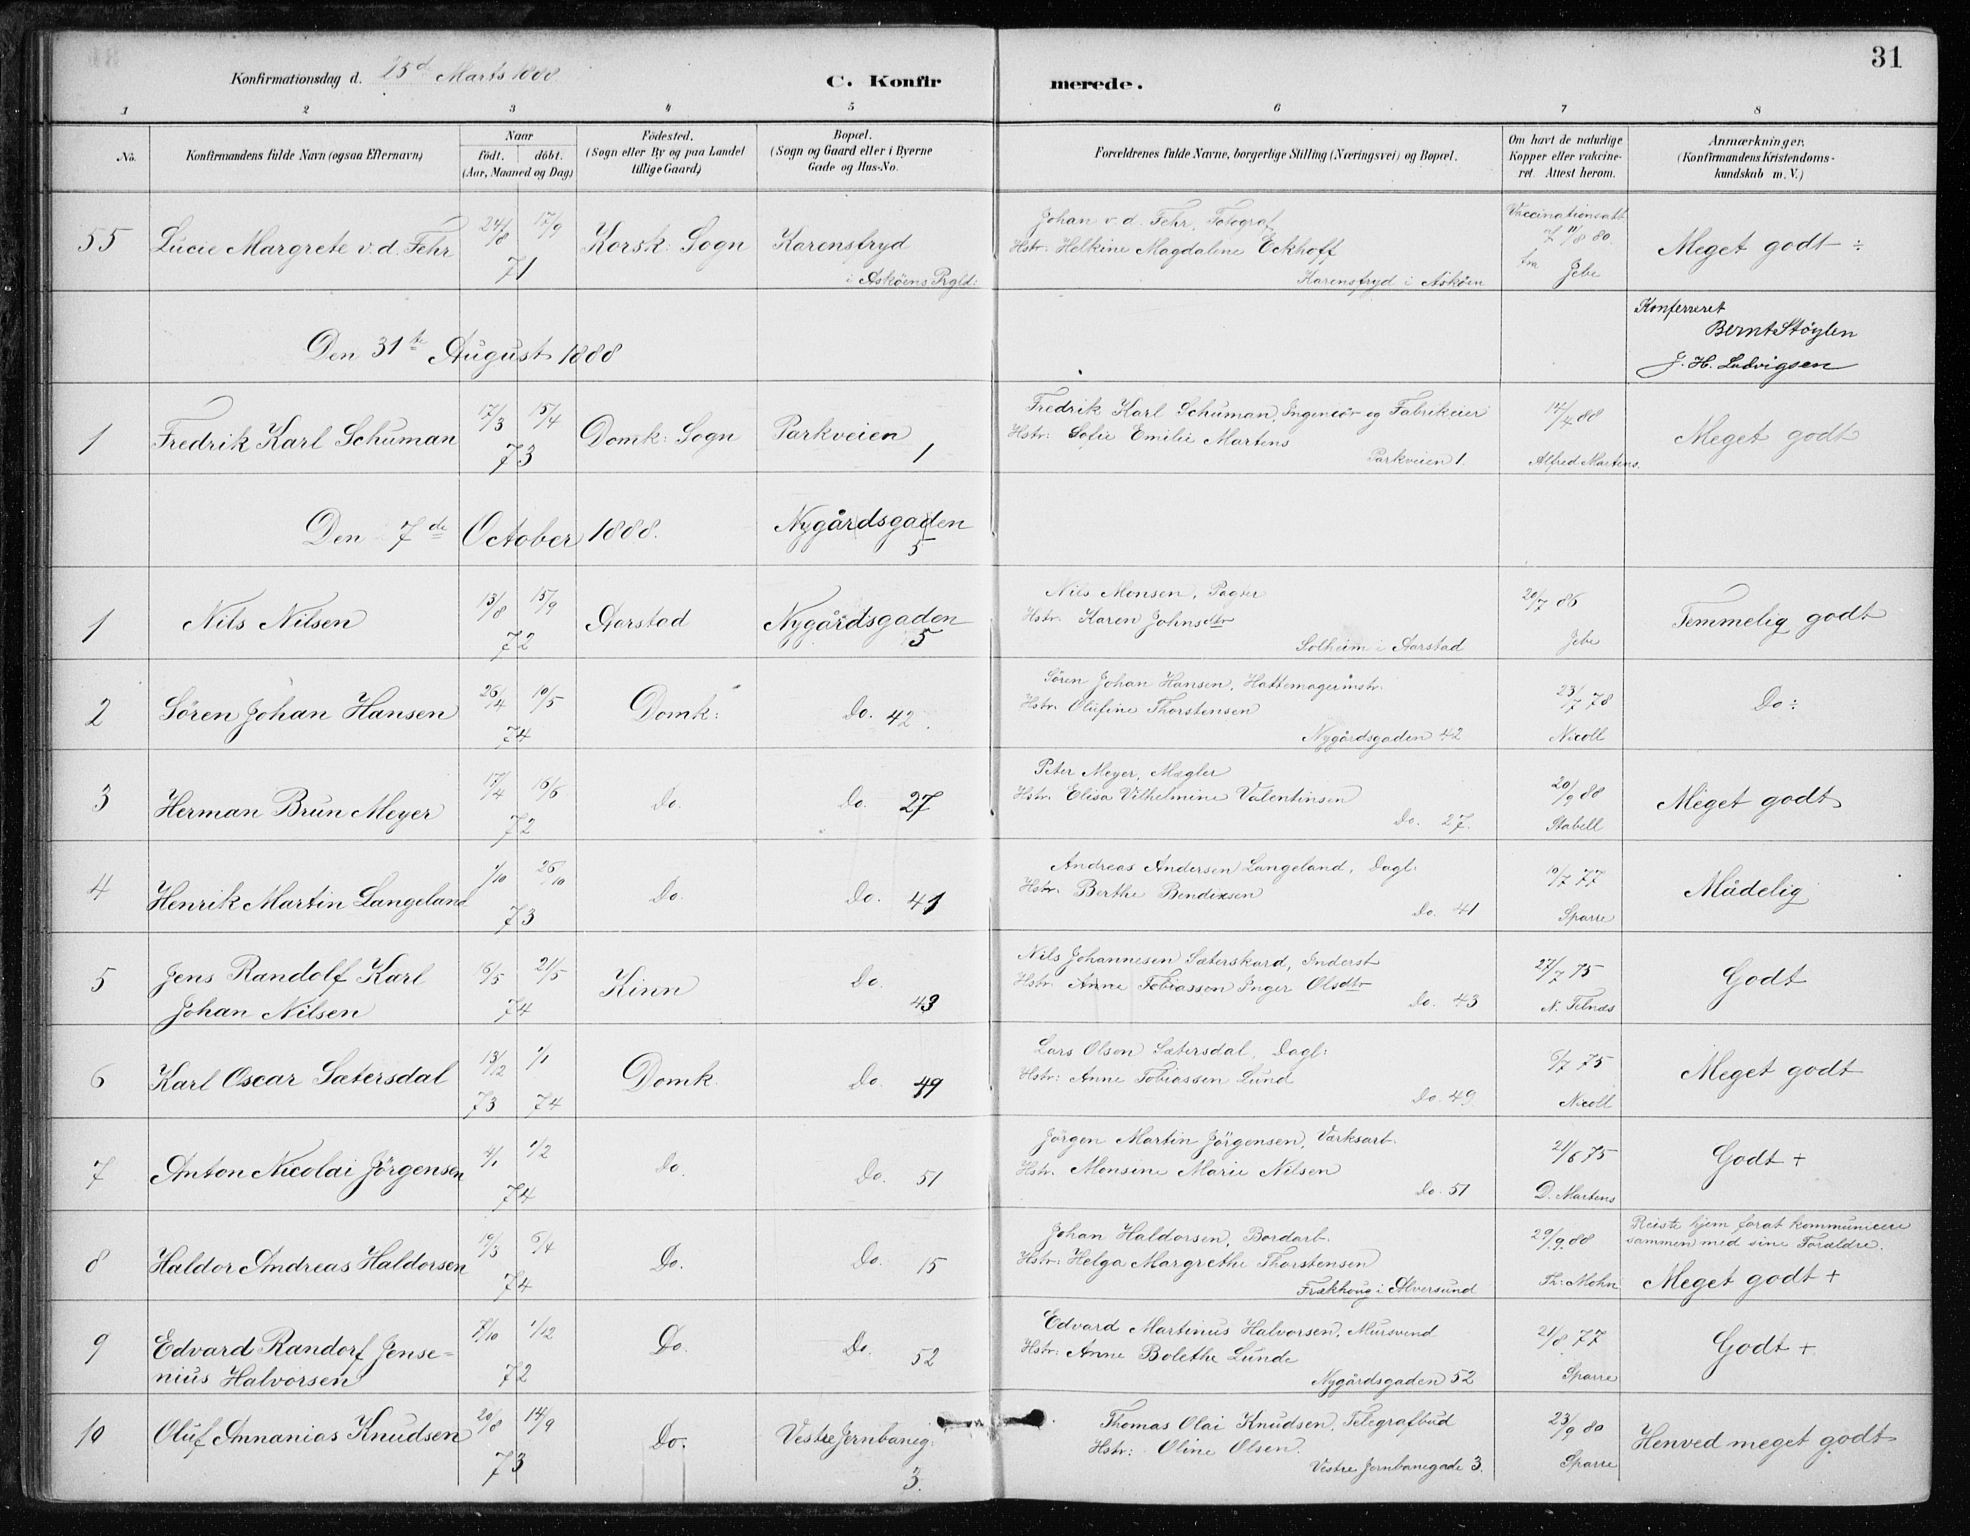 31
Konfirmationsdag d. 25d Marts 1888
C. Konfirmerede.
1 2 3 4 5 6 7 8
No.
Konfirmandens fulde Navn (ogsaa Efternavn)
Naar
födt. döbt.
(Aar, Maaned og Dag)
Födested.
(Sogn eller By og paa Landet
tillige Gaard)
Bopæl.
(Sogn og Gaard eller i Byerne
Gade og Hus-No.
Forældrenes fulde Navne, borgerlige Stilling (Næringsvei) og Bopæl.
Om havt de naturlige
Kopper eller vakcine-
ret. Attest herom.
Anmærkninger.
(Konfirmandens Kristendoms-
kundskab m. V.)
55 Lucie Margrete v. d. Fehr 24/8 17/9 71 Korsk: Sogn
Karensfryd
i Askøens Prgld:
Johan v. d. Fehr, Fotograf
Hstr: Helkine Magdalene Eckhoff
Karensfryd i Askøen
Vaccinationsatt
11/8 80.
fra Jebe
Meget godt ÷
Den 31te August 1888
Konfereret
Bernt Støylen
J. H. Ludvigsen
1 Fredrik Karl Schuman 17/3 15/4 73 Domk: Sogn Parkveien 1
Fredrik Karl Schuman, Ingeniør og Fabrikeier
Hstr: Sofie Emilie Martens
Parkveien 1.
14/4 88
Alfred Martens.
Meget godt
Den 7de October 1888. Nygårdsgaden 5
1 Nils Nilsen 13/8 15/9 72 Aarstad Nygårdsgaden 5
Nils Monsen,
Hstr. Karen Johnsdtr
Solheim i Aarstad
20/7 86
Jebe
Temmelig godt
2 Sören Johan Hansen 26/4 10/5 74 Domk: Do. 42.
Sören Johan Hansen, Hattemagermstr.
Hstr. Olufine Thorstensen
Nygårdsgaden 42
23/7 78
Nicoll
Do ÷
3 Herman Brun Meyer 17/4 16/6 72 Do. Do. 27
Peter Meyer, Mægler
Hstr. Elisa Vilhelmine Valentinsen
Do. 27.
20/9 88
Stabell
Meget godt
4 Henrik Martin Langeland 1/10 26/10 73 Do. Do. 41
Andreas Andersen Langeland, Dagl:
Hstr. Berthe Bendixsen
Do. 41
10/7 77
Sparre
Mådelig
5 Jens Randolf Karl
Johan Nilsen
6/5 21/5 74 Kinn Do. 43
Nils Johannesen Sæterskard, Inderst
Hstr. Anne Tobiassen Inger Olsdtr
Do. 43
27/7 75
Godt
6 Karl Oscar Sætersdal 13/12 73 1/1 74 Domk. Do. 49
Lars Olsen Sætersdal, Dagl:
Hstr: Anne Tobiassen Lund
Do. 49.
6/7 75
Nicoll
Meget godt
7 Anton Nicolai Jörgensen 4/1 1/2 74 Do. Do. 51
Jörgen Martin Jörgensen, Værksarb.
Hstr. Monsine Marie Nilsen
Do. 51
21/6 75
D. Martens
Godt +
8 Haldor Andreas Haldorsen 19/3 6/4 74 Do. Do. 15
Johan Haldorsen, Bordarb.
Hstr: Helga Margrethe Thorstensen
Frækhoug i Alversund
29/9. 88
Th: Mohn
Reiste hjem forat kommunicere
sammen med sine Forældre.
Meget godt +
9 Edvard Randorf Jense-
nius Halvorsen
7/10 1/12 72 Do. Do. 52
Edvard Martinus Halvorsen, Mursvend
Hstr: Anne Bolethe Lunde
Nygårdsgaden 52
21/8. 77
Sparre
Godt +
10 Oluf Annanias Knudsen 20/8 14/9 73 Do. Vestre Jernbaneg. 3.
Thomas Olai Knudsen, Telegrafbud
Hstr: Oline Olsen.
Vestre Jernbanegade 3.
23/9 80
Sparre
Henved meget godt